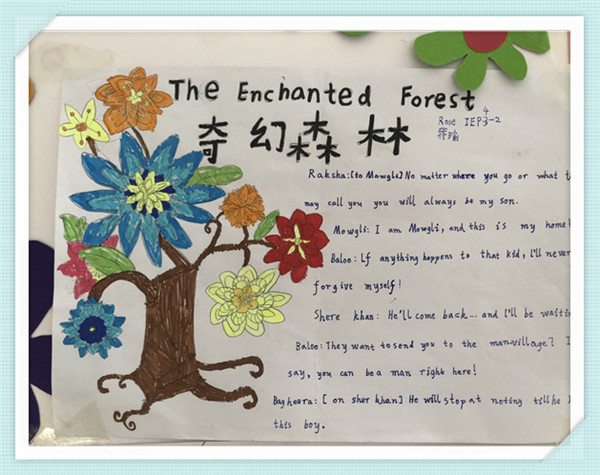 The Enchanted Forest
奇幻森林
4
Rose IEP3-2
Raksha: [to Mowgli] No matter where you go or what t
may call you you will always be my son.
Mowgli: I am Mowgli, and this is my home!
Baloo: Lf anything happens to that kid, I'll never
forgive myself!
Shere khan: He'll come back... and I'll be waitin
Baloo: They want to send you to the man-village? I
say, you can be a man right here!
Bagheera: [on sher khan] He will stop at noting till he
this boy.